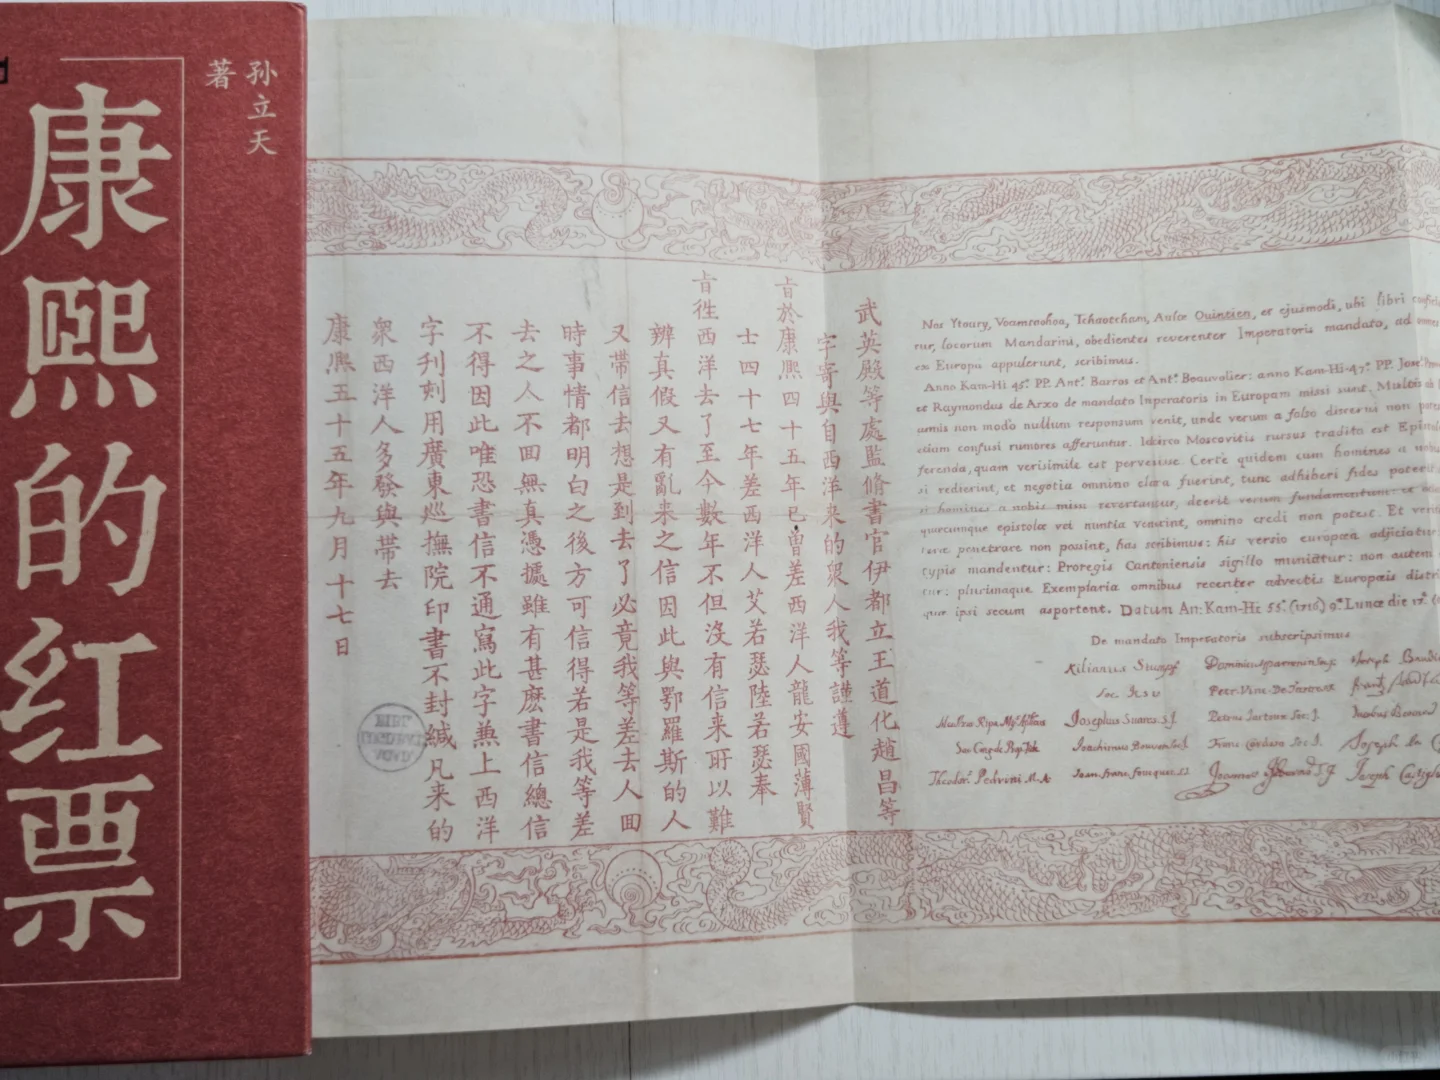 孙立天
著
康熙的红票
武英殿等處監脩書官伊都立王道化趙昌等
字寄與自西洋来的衆人我等謹遵
旨於康熙四十五年已曾差西洋人龍安國薄賢
士四十七年差西洋人艾若瑟陸若瑟奉
旨徃西洋去了至今數年不但没有信来所以難
辨真假又有亂来之信因此與鄂羅斯的人
又带信去想是到去了必竟我等差去人回
時事情都明白之後方可信得若是我等差
去之人不回無真憑據雖有甚麽書信總信
不得因此唯恐書信不通寫此字兼上西洋
字刊刻用廣東巡撫院印書不封緘凡来的
衆西洋人多發與带去
康熙五十五年九月十七日
Nos Ytoury, Vamtaohoa, Tchaotcham, Aulæ Ouintien, et ejusmodi, ubi libri
tur, locorum Mandarini, obedientes reverenter Imperatoris mandato, ad
ex Europa appulerunt, scribimus.
Anno Kam-Hi 45º. PP. Antº. Barros et Antº. Beauvolier: anno Kam-Hi 47º. PP. Josº.
et Raymondus de Arxo de mandato Imperatoris in Europam missi sunt. Multis
annis non modò nullum responsum venit, unde verum a falso discerni non
etiam confusi rumores afferuntur. Idcirco Moscovitis rursus tradita est
ferenda, quam verisimile est pervenisse. Certè quidem cum homines a
si redierint, et negotia omnino clara fuerint, tunc adhiberi fides
si homines a nobis missi revertantur, deerit verum fundamentum: et
quæcunque epistolæ vel nuntia venerint, omnino credi non potest. Et
penetrare non possint, has scribimus: his versio europæa adjiciatur:
typis mandentur: Proregis Cantoniensis sigillo muniatur: non autem
tur: plurimaque Exemplaria omnibus recenter advectis Europæis
quæ ipsi secum asportent. Datum An: Kam-Hi 55º. (1716) 9ª. Lunæ die 17ª.
De mandato Imperatoris subscripsimus
Kilianus Stumpf Dominicus Parrenin Joseph
Soc. Jesu Petr. Vinc. De Tartre
Matthæus Ripa Josephus Suares S.J. Petrus Jartoux Soc. J. Jacobus
Joachimus Bouvet Franc. Cardoso Soc. J. Joseph
Theodor. Pedrini Joan. Franc. Foucquet S.J. Joannes Joseph
BIBL.